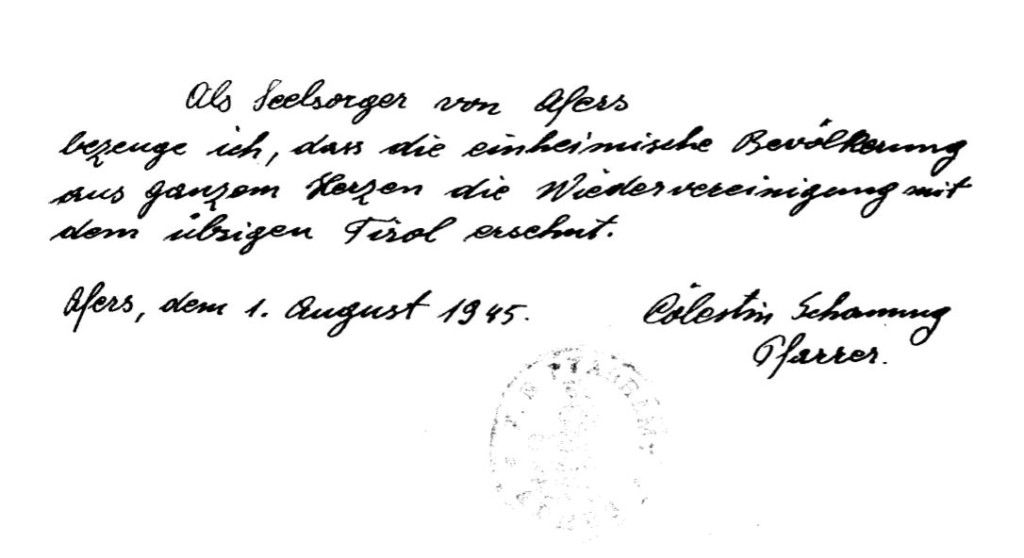 Als Seelsorger von Afers
bezeuge ich, dass die einheimische Bevölkerung
aus ganzem Herzen die Wiedervereinigung mit
dem übrigen Tirol ersehnt.
Afers, dem 1. August 1945.
Cölestin Schanung
Pfarrer.